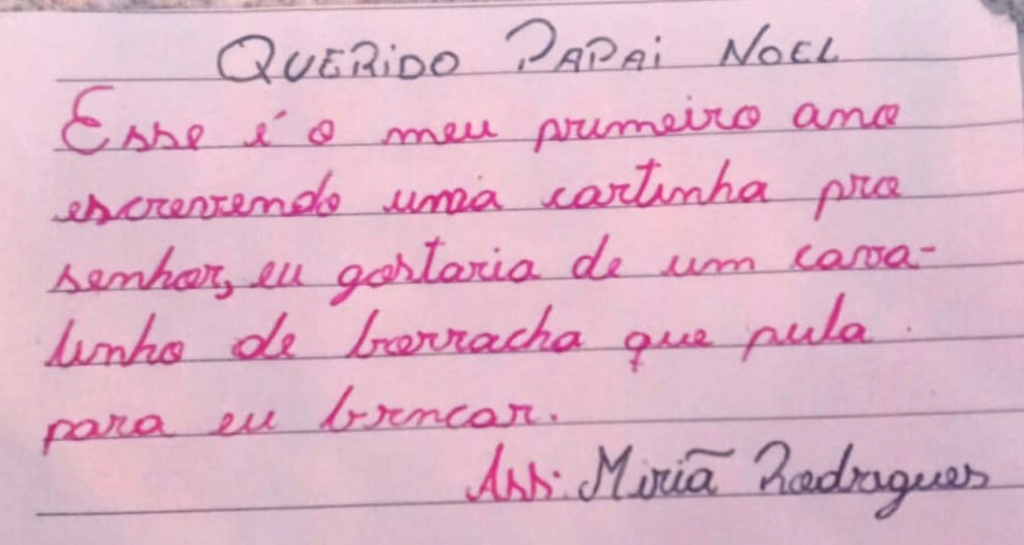 QUERIDO PAPAI NOEL
Esse é o meu primeiro ano
escrevendo uma cartinha pro
senhor, eu gostaria de um cava-
linho de borracha que pula
para eu brincar.
Ass: Miriã Rodrigues